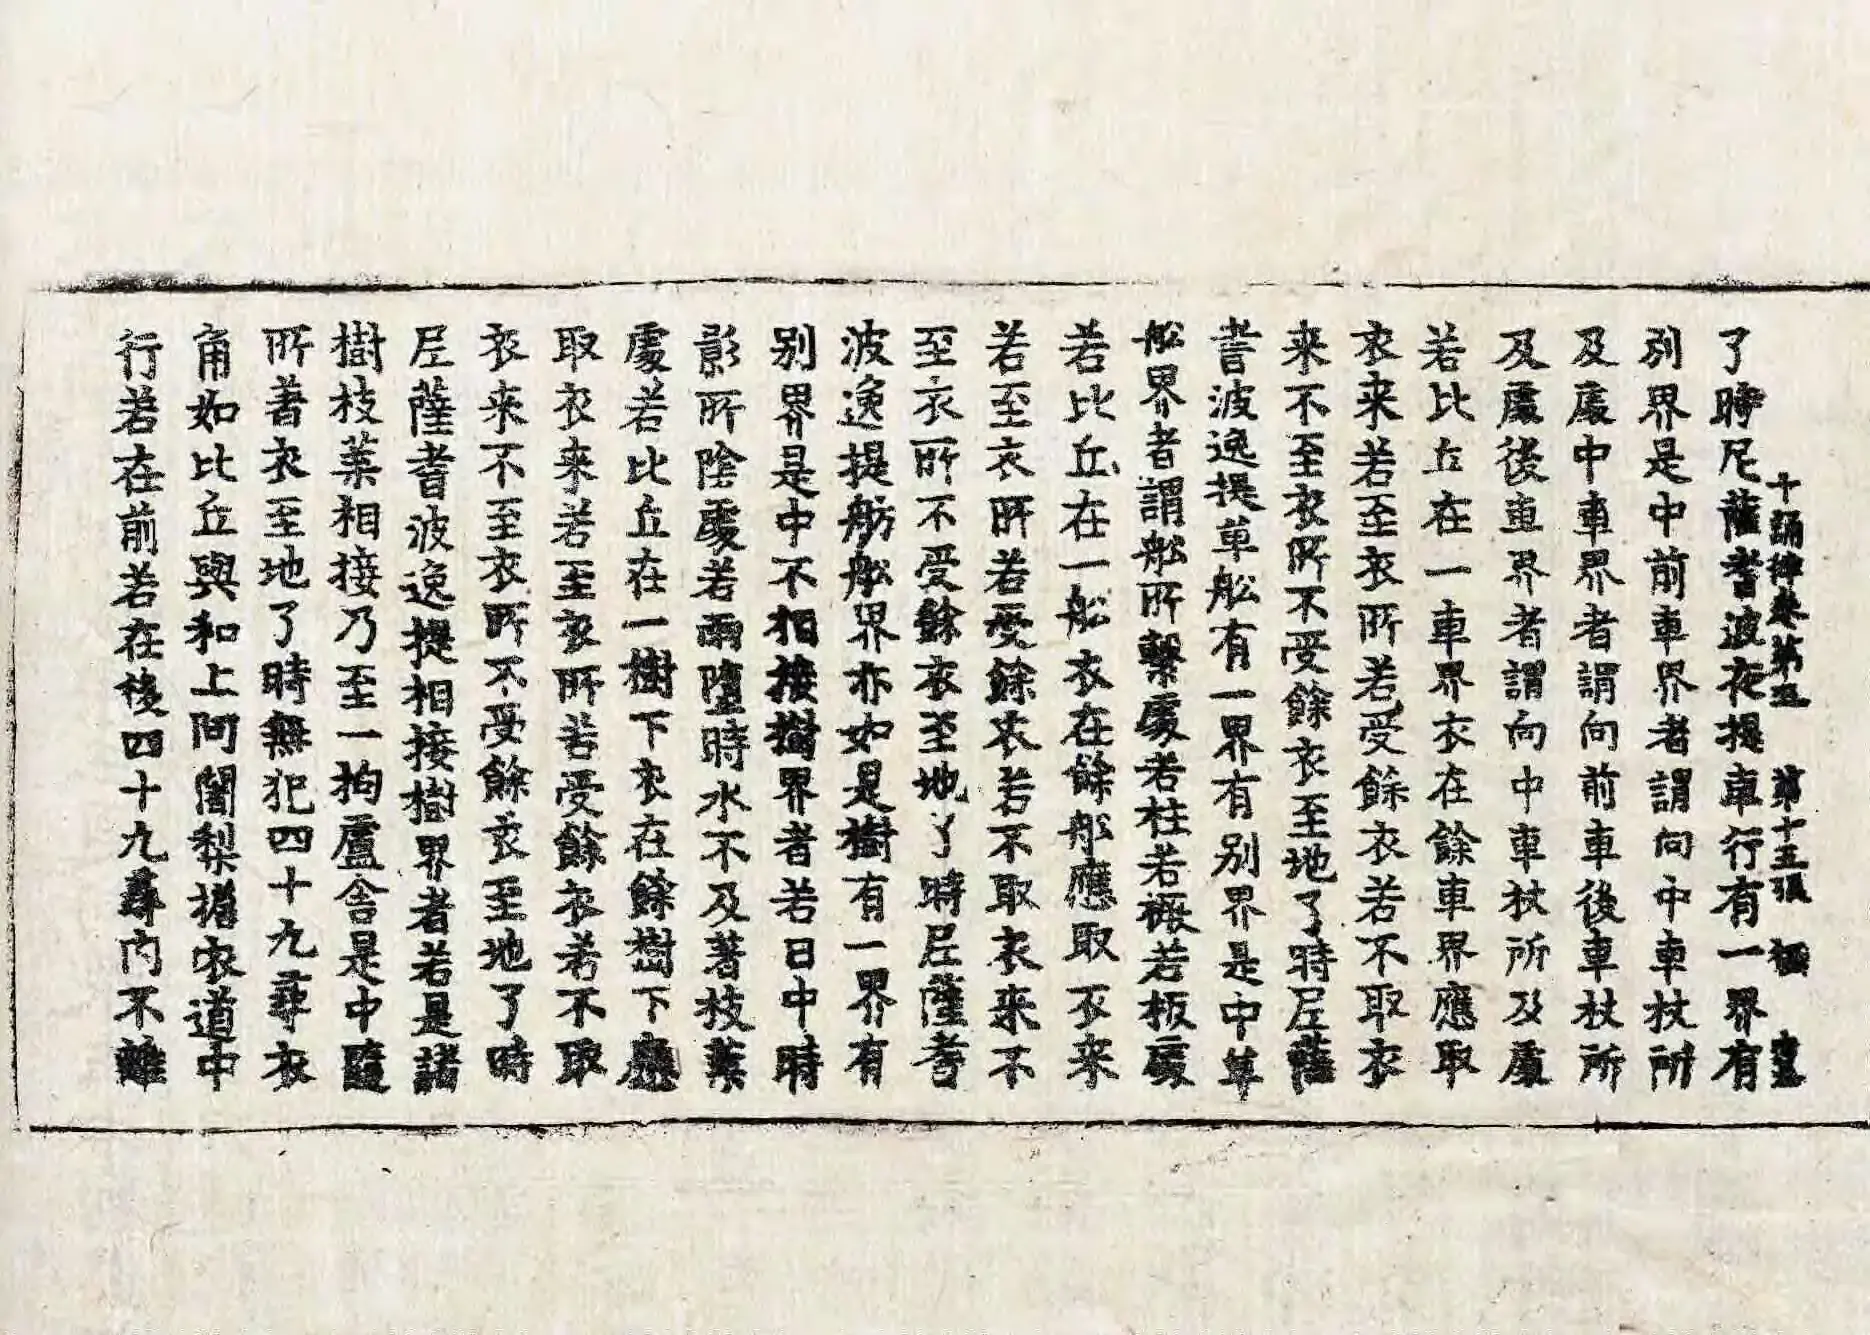 十誦律卷第五 第十五張 極
了時尼薩耆波夜提車行有一界有
別界是中前車界者謂向中車杖所
及處中車界者謂向前車後車杖所
及處後車界者謂向中車杖所及處
若比丘在一車界衣在餘車界應取
衣来若至衣所若受餘衣若不取衣
来不至衣所不受餘衣至地了時尼薩
耆波逸提車舩有一界有別界是中單
舩界者謂舩所繫處若柱若橛若板處
若比丘在一舩衣在餘舩應取衣来
若至衣所若受餘衣若不取衣来不
至衣所不受餘衣至地了時尼薩耆
波逸提舫舩界亦如是樹有一界有
別界是中不相接樹界者若日中時
影所陰處若雨墮時水不及著枝葉
處若比丘在一樹下衣在餘樹下應
取衣来若至衣所若受餘衣若不取
衣来不至衣所不受餘衣至地了時
尼薩耆波逸提相接樹界者若是諸
樹枝葉相接乃至一拘盧舍是中隨
所著衣至地了時無犯四十九尋衣
角如比丘與和上阿闍梨擔衣道中
行若在前若在後四十九尋內不離